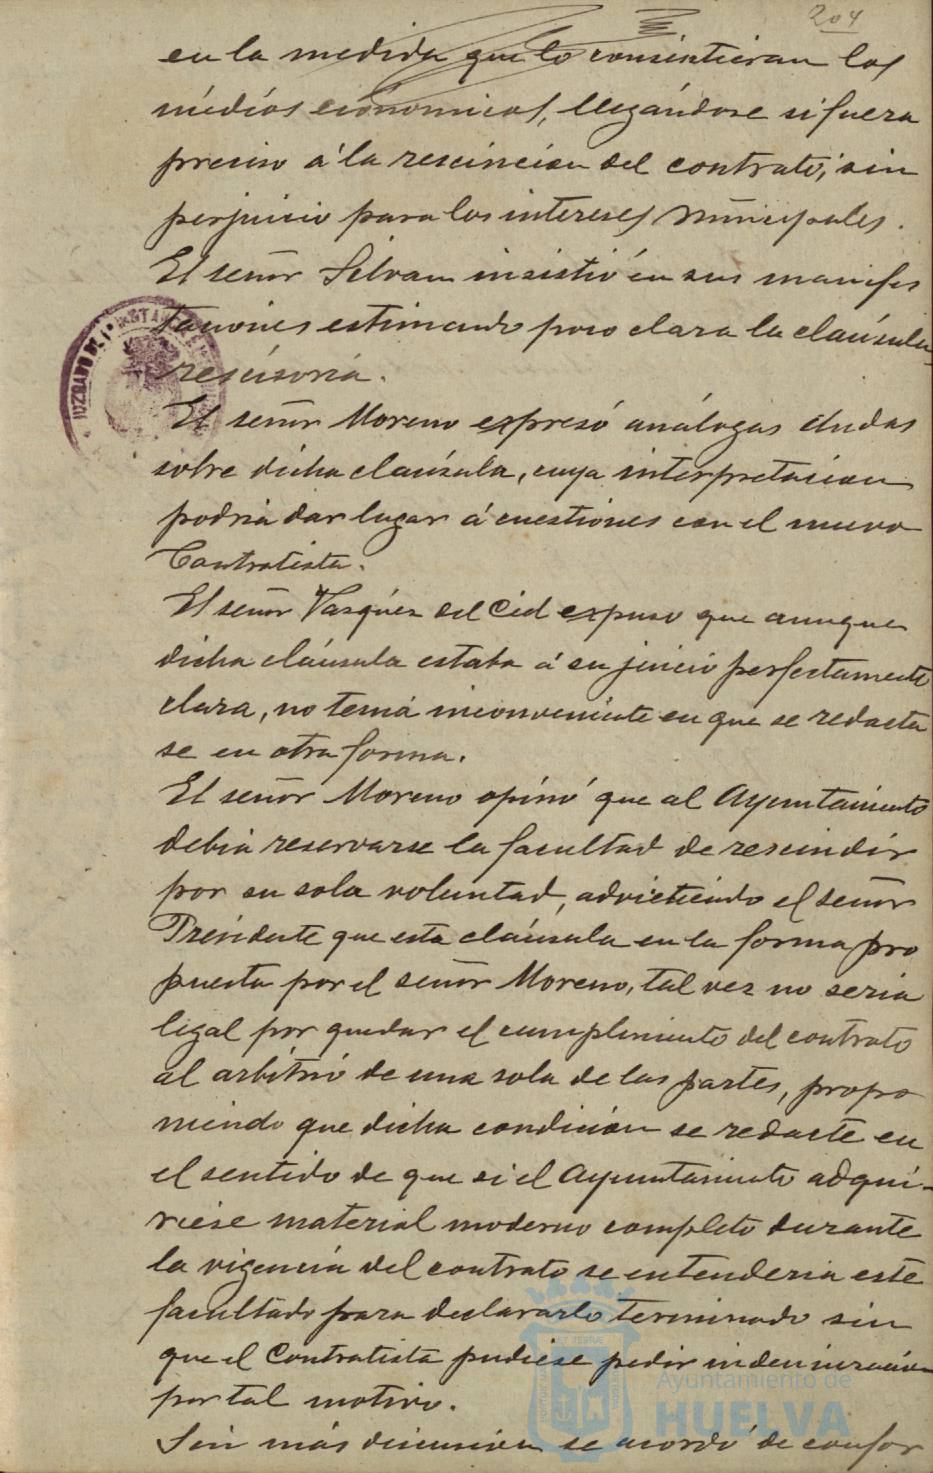 204
en la medida que lo consintieran los
médios económicos, llegándose si fuera
preciso á la rescincion del contrato, sin
perjuicio para los intereses municipales.
El señor Silvan insistió en sus manifes
taciones estimando poco clara la claúsula
rescisoria.
El señor Moreno expresó análogas dudas
sobre dicha claúsula, cuya interpretacion
podria dar lugar á cuestiones con el nuevo
Contratista.
El señor Vazquez del Cid expuso que aunque
dicha claúsula estaba á su juicio perfectamente
clara, no tenia inconveniente en que se redacta
se en otra forma.
El señor Moreno opinó que al Ayuntamiento
debia reservarse la facultad de rescindir
por su sola voluntad, advirtiendo el señor
Presidente que esta claúsula en la forma pro
puesta por el señor Moreno, tal vez no seria
legal por quedar el cumplimiento del contrato
al arbitrio de una sola de las partes, propo
niendo que dicha condición se redacte en
el sentido de que si el Ayuntamiento adqui-
riese material moderno completo durante
la vigencia del contrato se entenderia este
facultado para declararlo terminado sin
que el Contratista pudiese pedir indemnizacion
por tal motivo.
Sin más discusion se acordó de confor
JUZGADO DE 1ª INSTA
Ayuntamiento de
HUELVA